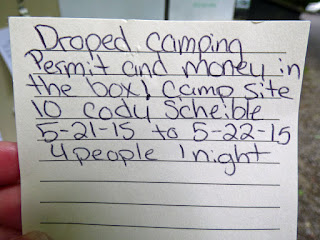 Droped camping
Permit and money in
the box! Camp site
10 Cody Scheible
5-21-15 to 5-22-15
4 people 1 night